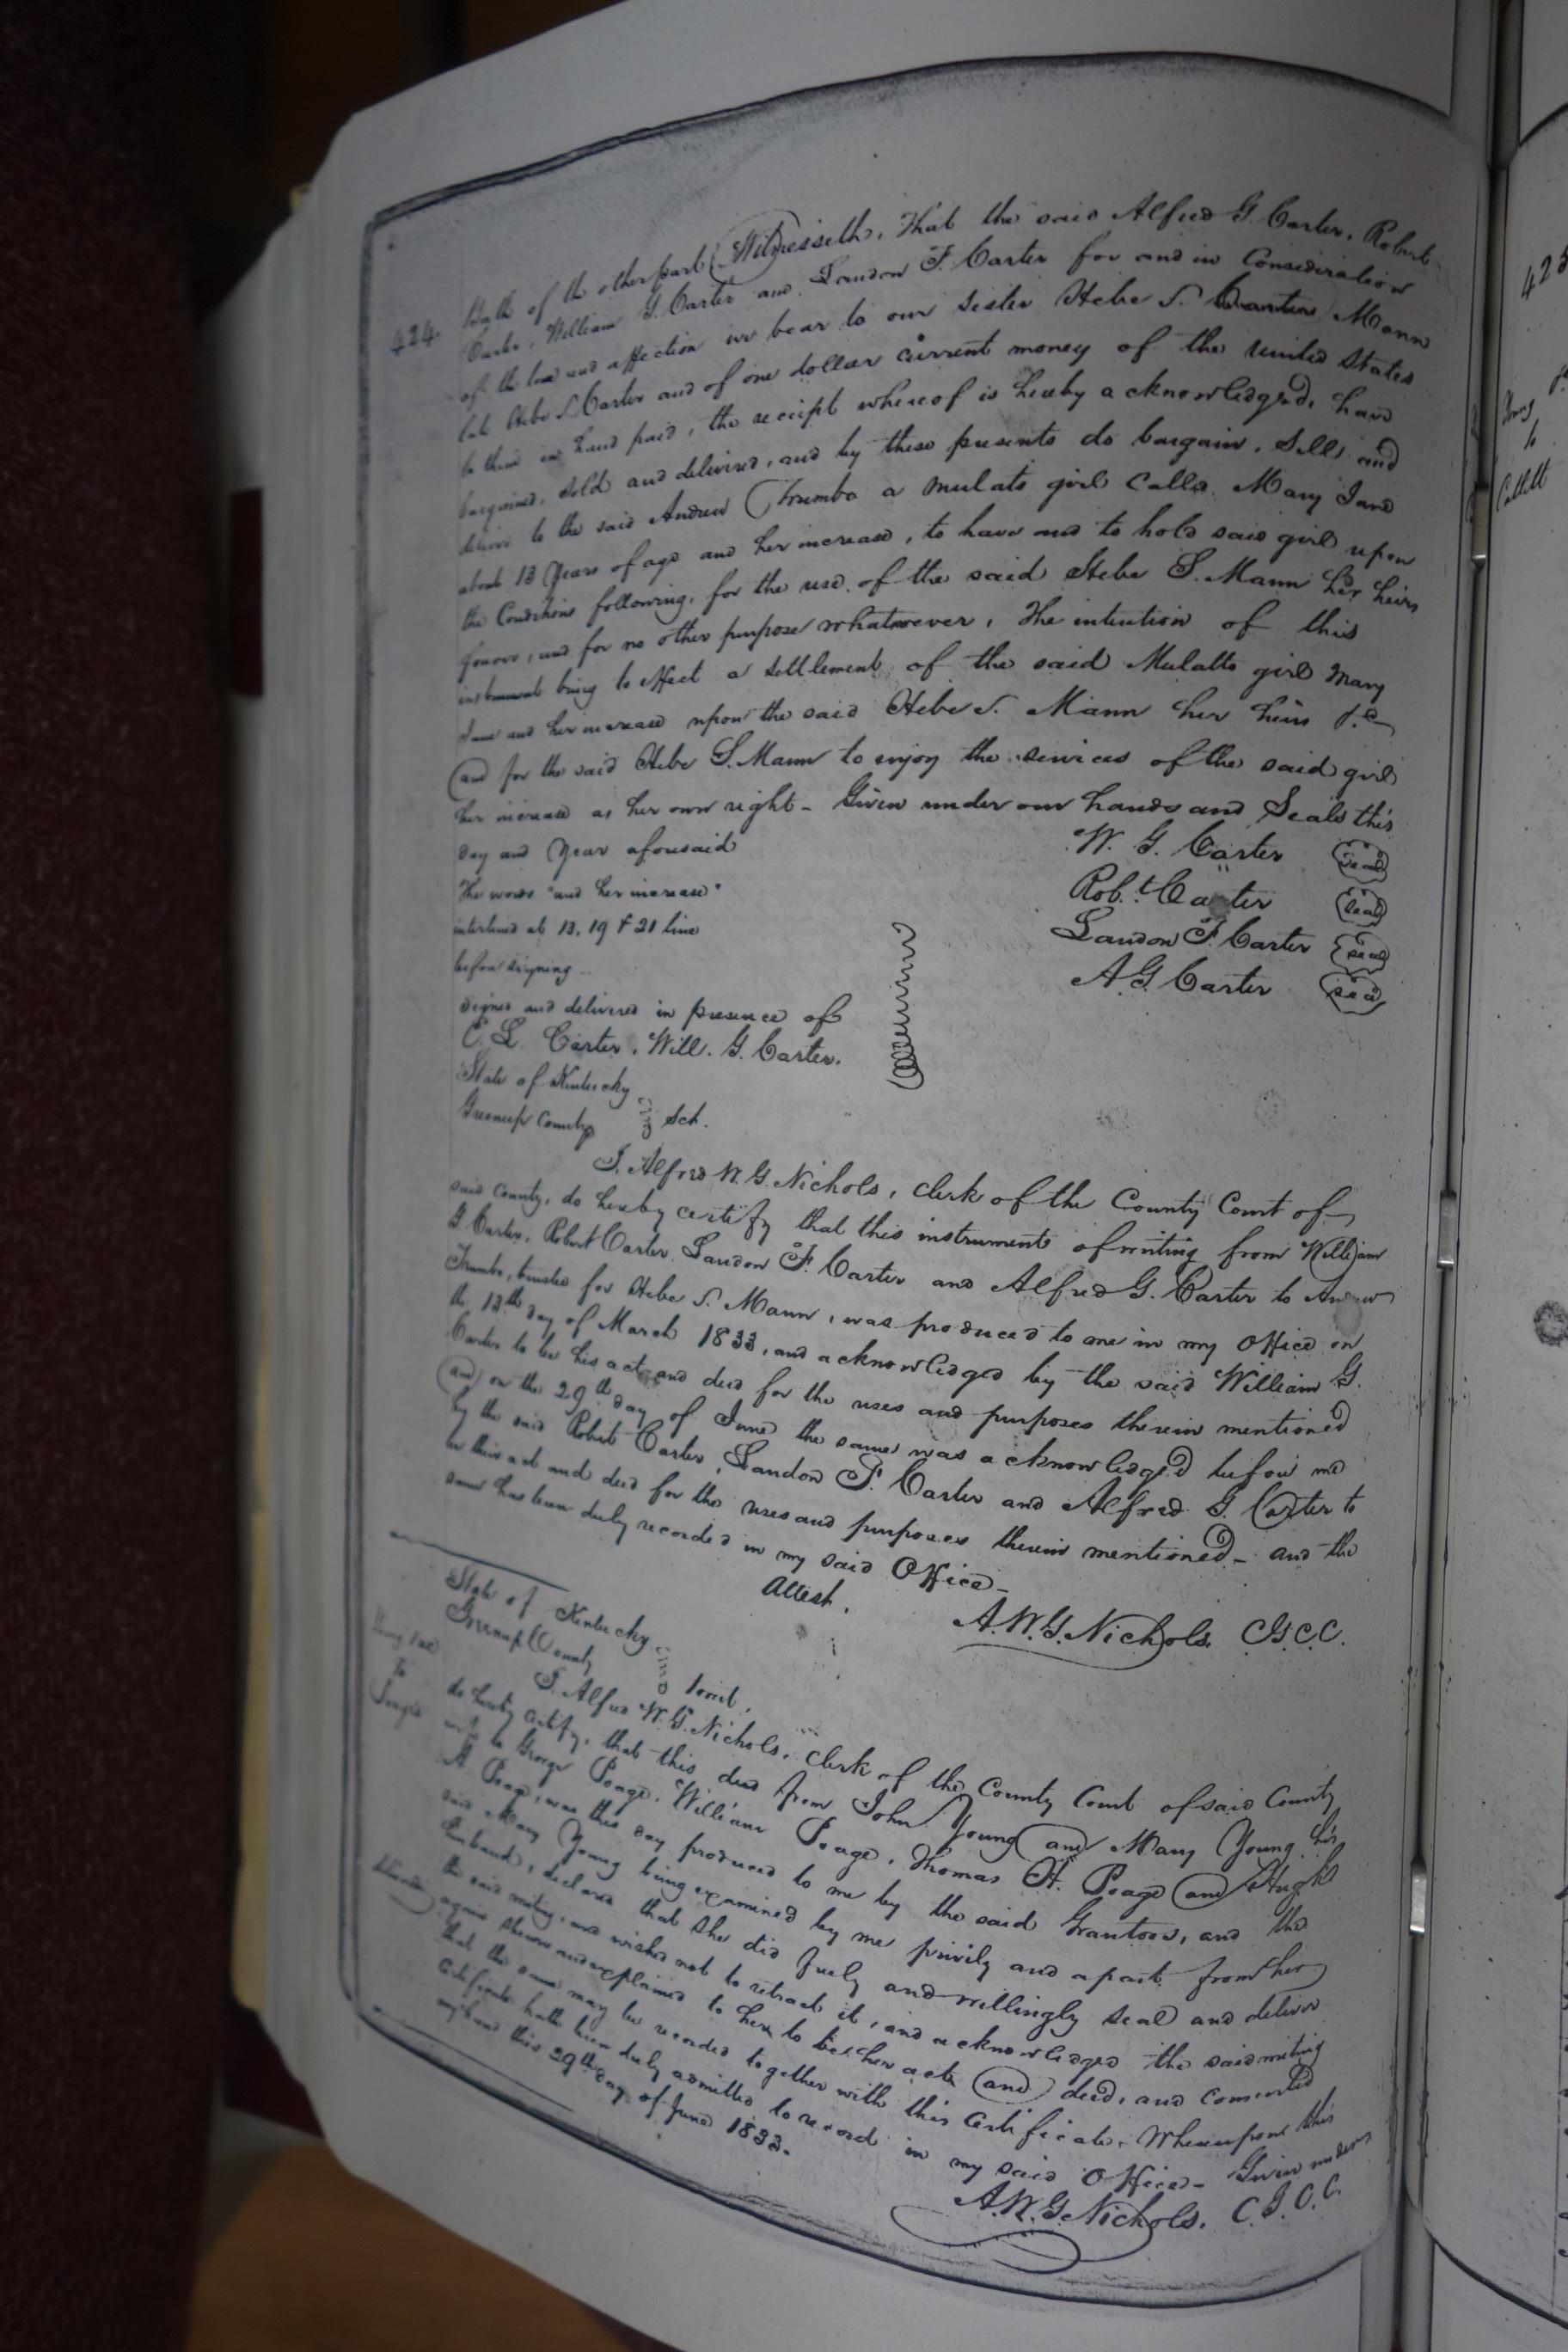 424.
Bath of the other part Witnesseth, That the said Alfred G. Carter, Robert
Carter, William G. Carter and Landon F. Carter for and in Consideration
of the love and affection we bear to our sister Hebe S. Mann
late Hebe S. Carter and of one dollar current money of the United States
to them in hand paid, the receipt whereof is hereby acknowledged, have
bargained, sold and delivered, and by these presents do bargain, sell and
deliver to the said Andrew Trumbo a mulato girl Calld. Mary Jane
about 13 Years of age and her increase, to have and to hold said girl upon
the Conditions following, for the use of the said Hebe S. Mann her heirs
forever, and for no other purpose whatsoever, The intention of this
instrument being to effect a settlement of the said Mulatto girl Mary
Jane and her increase upon the said Hebe S. Mann her heirs &c
and for the said Hebe S. Mann to enjoy the services of the said girl
her increase as her own right - Given under our hands and Seals this
day and Year aforesaid
W. G. Carter seal
The words "and her increase"
Rob.t Carter seal
interlined at 13, 19 & 21 line
Landon F. Carter seal
before signing
A. G. Carter seal
signed and delivered in presence of
C. L. Carter, Will. G. Carter.
State of Kentucky
Greenup County Sct.
I, Alfred W. G. Nichols, clerk of the County Court of
said County, do hereby certify that this instrument of writing from William
G Carter, Robert Carter, Landon F. Carter and Alfred G. Carter to Andrew
Trumbo, trustee for Hebe S. Mann, was produced to me in my Office on
the 13th day of March 1833, and acknowledged by the said William G.
Carter to be his act and deed for the uses and purposes therein mentioned
and on the 29th day of June the same was acknowledged before me
by the said Robert Carter, Landon F. Carter and Alfred G. Carter to
be their act and deed for the uses and purposes therein mentioned - and the
same has been duly recorded in my said Office -
Attest.
A. W. G. Nichols C.G.C.C.
State of Kentucky
Greenup County towit.
to
Poage
I, Alfred W. G. Nichols, clerk of the County Court of said County
do hereby certify, that this deed from John Young and Mary Young his
wife to George Poage, William Poage, Thomas H. Poage and Hugh
A. Poage, was this day produced to me by the said Grantors, and the
said Mary Young being examined by me privily and apart from her
husband, declared that she did freely and willingly seal and deliver
the said writing, and wishes not to retract it, and acknowledged the said writing
again shewn and explained to her, to be her act and deed, and consented
that the same may be recorded together with this Certificate. Whereupon this
certificate hath been duly admitted to record in my said Office - Given under
my hand this 29th day of June 1833.
A. W. G. Nichols. C.G.C.C.
425
Young
to
Catlett